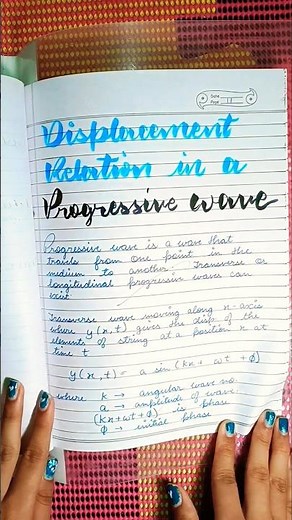 Date
Page
Displacement
Relation in a
Progressive wave
Progressive wave is a wave that
travels from one point in the
medium to another. Transverse or
longitudinal progressive waves can
exist.
Transverse wave moving along x-axis
where y(x,t) gives the disp. of the
elements of string at a position x at
time t
y(x,t) = a sin(kx + ωt + ϕ)
where k → angular wave no.
a → amplitude of wave
(kx+ωt+ϕ) is phase
ϕ → initial phase